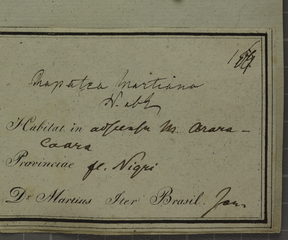 Rapatea Martiana
Habitat in adscensu M. Arara-
Coara
Provinciae fl. Nigri
Dr Martius Iter Brasil. Jan.